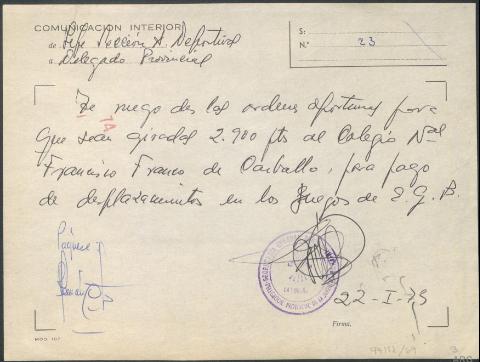 COMUNICACION INTERIOR
de Jefe Sección A. Deportivas
a Delegado Provincial
S:
N.° 23
Te ruego des las ordenes oportunas para
que sean giradas 2.900 pts al Colegio Nal
Francisco Franco de Carballo, para pago
de desplazamientos en los Juegos de E.G.B.
Páguese
22-I-75
Firma,
MOD. 107